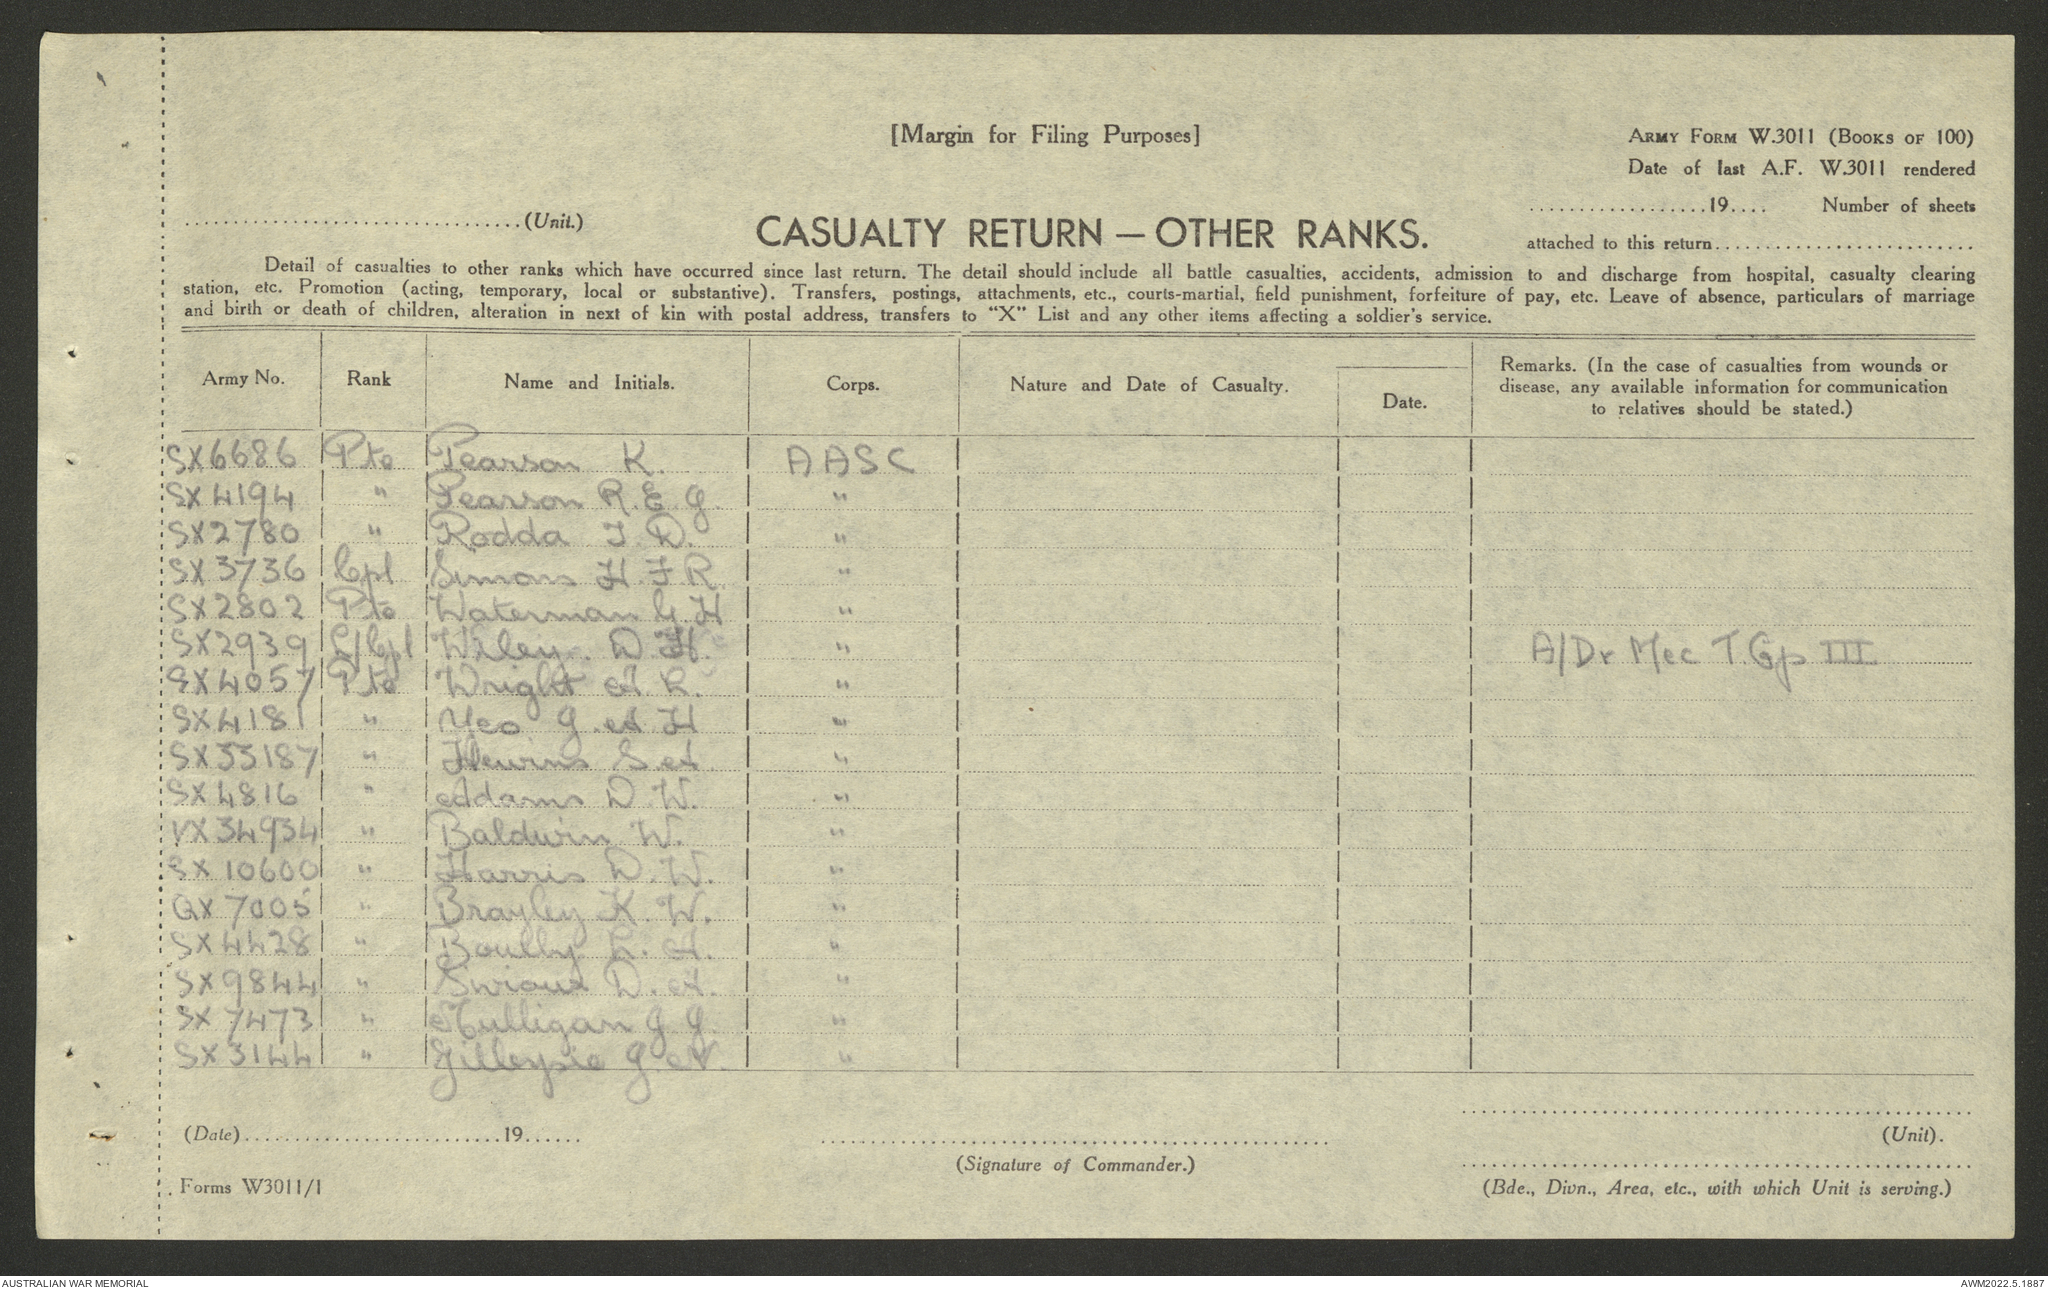 [Margin for Filing Purposes]
ARMY FORM W.3011 (BOOKS OF 100)
Date of last A.F. W.3011 rendered
..................19.... Number of sheets
..................................(Unit.)
CASUALTY RETURN — OTHER RANKS.
attached to this return..........................
Detail of casualties to other ranks which have occurred since last return. The detail should include all battle casualties, accidents, admission to and discharge from hospital, casualty clearing
station, etc. Promotion (acting, temporary, local or substantive). Transfers, postings, attachments, etc., courts-martial, field punishment, forfeiture of pay, etc. Leave of absence, particulars of marriage
and birth or death of children, alteration in next of kin with postal address, transfers to "X" List and any other items affecting a soldier's service.
Army No. Rank Name and Initials. Corps. Nature and Date of Casualty. Date. Remarks. (In the case of casualties from wounds or
disease, any available information for communication
to relatives should be stated.)
SX6686 Pte Pearson K. AASC
SX4194 " Pearson R.E.G. "
SX2780 " Rodda J. D. "
SX3736 Cpl Simons H.F.R. "
SX2802 Pte Waterman G.H "
SX2939 L/Cpl Wiley D.H. " A/Dr Mec T. Gp III
SX4057 Pte Wright A R. "
SX4181 " Yeo G. A H "
SX33187 " Hewins S.A. "
SX4816 " Adams D. W. "
VX34934 " Baldwin W. "
SX10600 " Harris D. W. "
QX7005 " Brayley K. W. "
SX4428 " L. A. "
SX9844 " D. A. "
SX7473 " Mulligan J. J. "
SX3144 " Gillespie G. N. "
(Date)..........................19......
(Signature of Commander.)
(Unit).
Forms W3011/1
(Bde., Divn., Area, etc., with which Unit is serving.)
AUSTRALIAN WAR MEMORIAL
AWM2022.5.1887